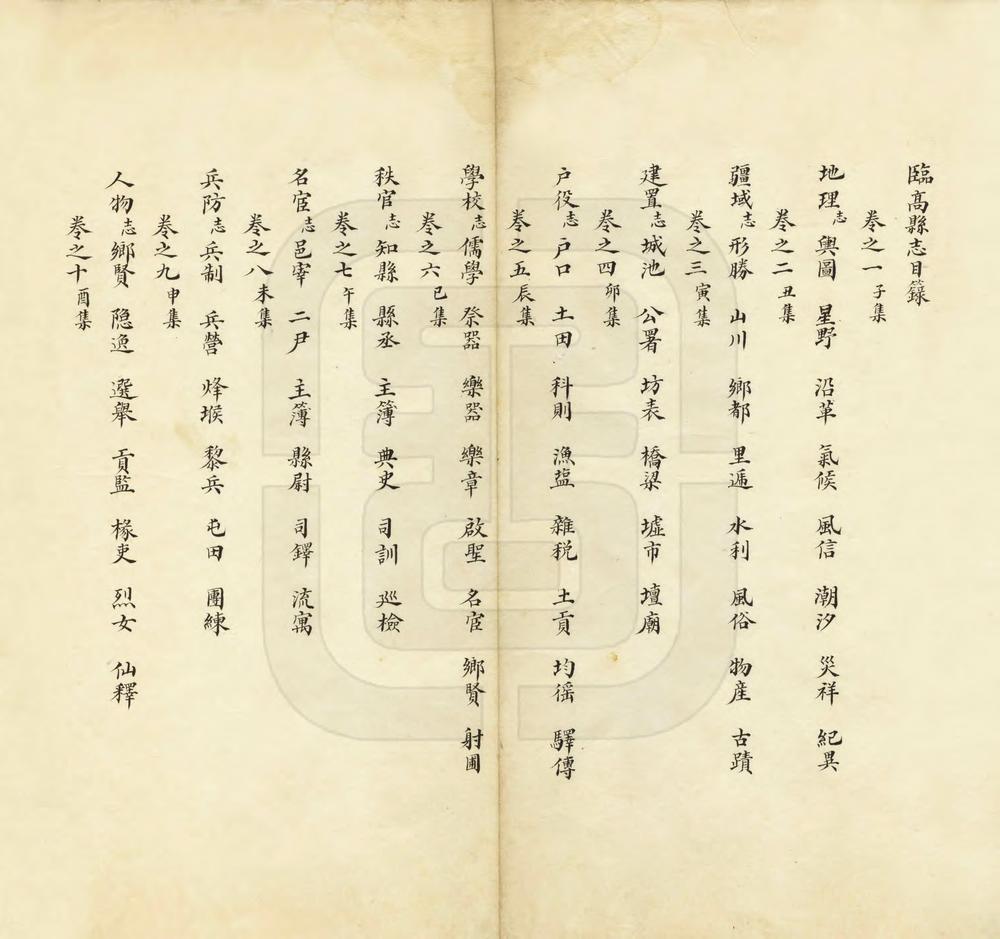 臨高縣志目錄
卷之一子集
地理志輿圖 星野 沿革 氣候 風信 潮汐 災祥 紀異
卷之二丑集
疆域志形勝 山川 鄉都 里遞 水利 風俗 物產 古蹟
卷之三寅集
建置志城池 公署 坊表 橋梁 墟市 壇廟
卷之四卯集
户役志户口 土田 科則 漁塩 雜稅 土貢 均徭 驛傳
卷之五辰集
學校志儒學 祭器 樂器 樂章 啟聖 名宦 鄉賢 射圃
卷之六巳集
秩官志知縣 縣丞 主簿 典史 司訓 巡檢
卷之七午集
名宦志邑宰 二尹 主簿 縣尉 司鐸 流寓
卷之八未集
兵防志兵制 兵營 烽堠 黎兵 屯田 團練
卷之九申集
人物志鄉賢 隐逸 選舉 貢監 椽吏 烈女 仙釋
卷之十酉集